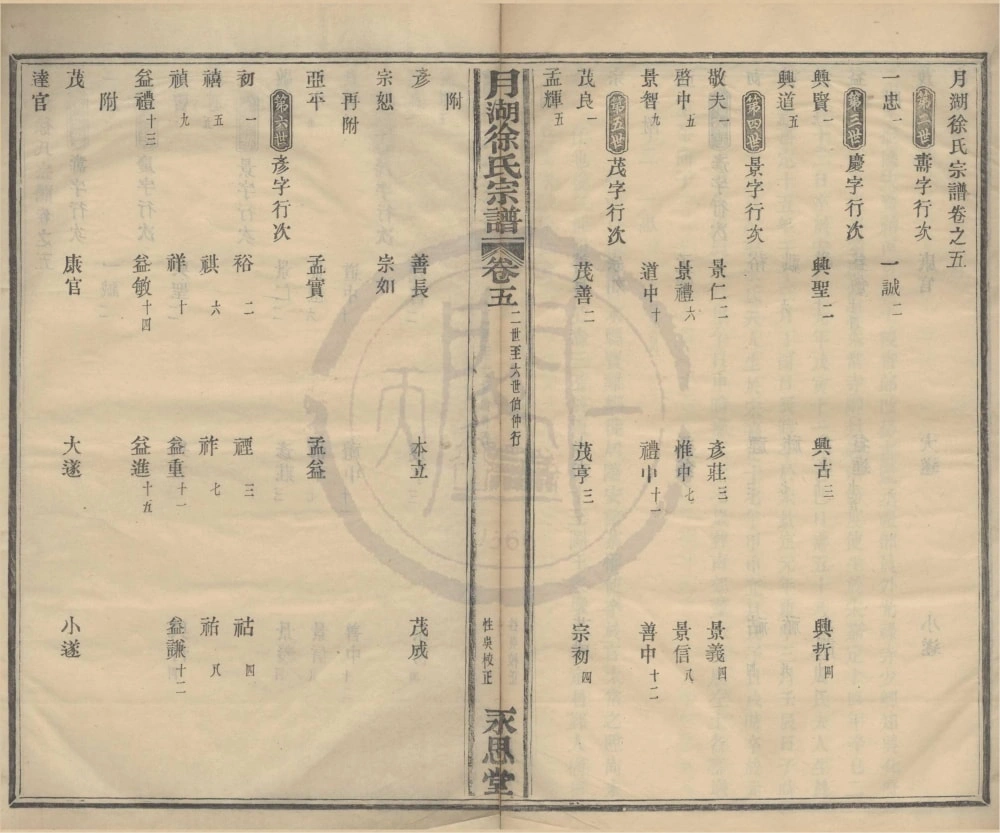 月湖徐氏宗譜卷之五
第二世 壽字行次
一忠一 一誠二
第三世 慶字行次
興賢一 興聖二 興古三 興哲四
興道五
第四世 景字行次
敬夫一 景仁二 彥莊三 景義四
啓中五 景禮六 惟中七 景信八
景智九 道中十 禮中十一 善中十二
第五世 茂字行次
茂良一 茂善二 茂亨三 宗初四
孟輝五
月湖徐氏宗譜 卷五 二世至六世伯仲行 性奂校正 永思堂
附
彥 善長 本立 茂成
宗恕 宗如
再附
亞平 孟實 孟益
第六世 彥字行次
初一 裕二 禋三 祜四
禧五 祺六 祚七 祐八
禎九 祥十 益重十一 益謙十二
益禮十三 益敏十四 益進十五
附
茂 康官 大遂 小遂
達官